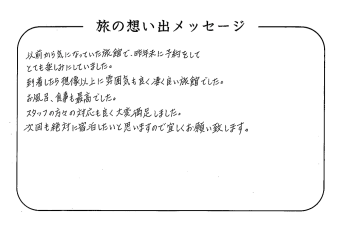 旅の想い出メッセージ
以前から気になっていた旅館で、昨年末に予約をして
とても楽しみにしていました。
到着したら想像以上に雰囲気も良く凄く良い旅館でした。
お風呂、食事も最高でした。
スタッフの方々の対応も良く大変満足しました。
次回も絶対に宿泊したいと思いますので宜しくお願い致します。